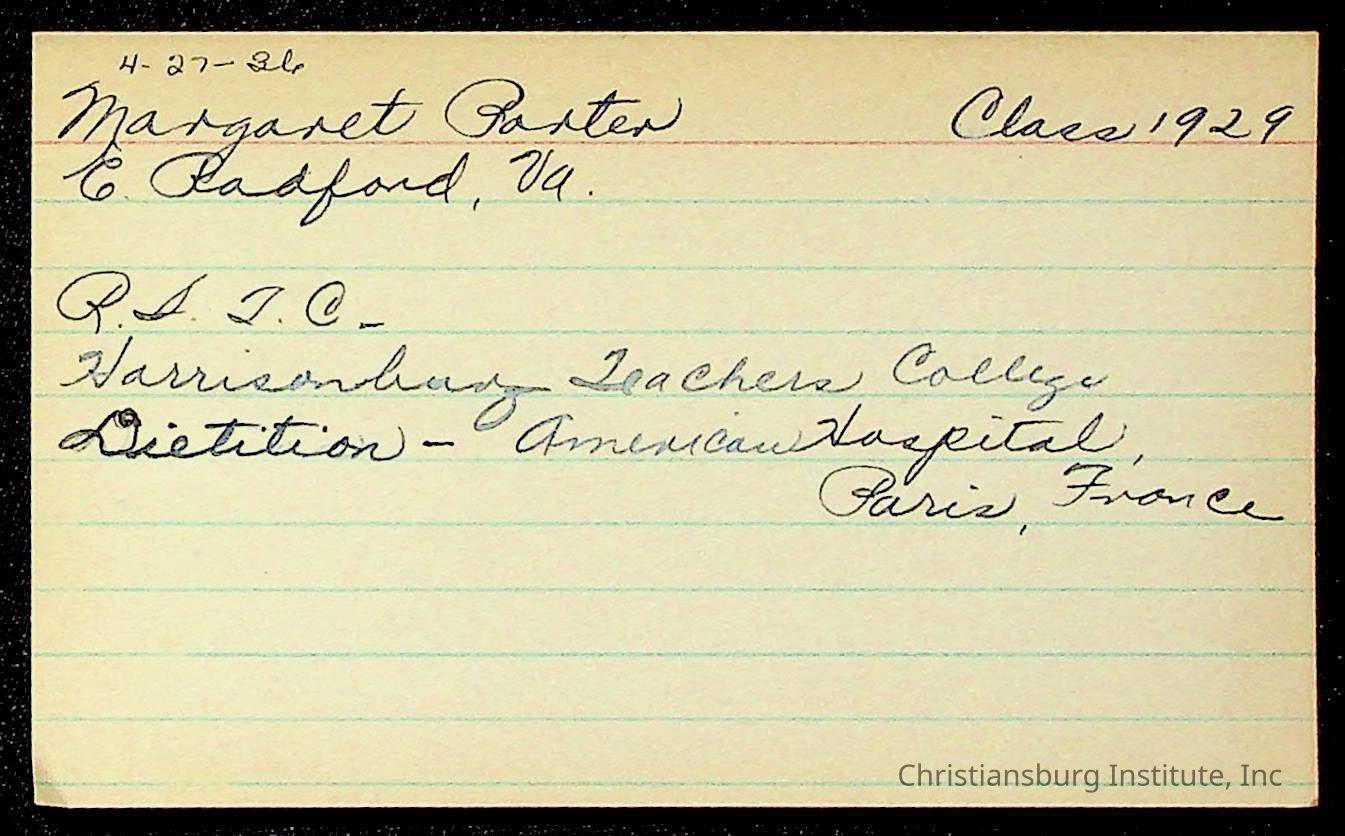 4-27-36
Margaret Porter Class 1929
E. Radford, Va.
R.S.T.C-
Harrisonburg Teachers College
Dietition - American Hospital,
Paris, France
Christiansburg Institute, Inc